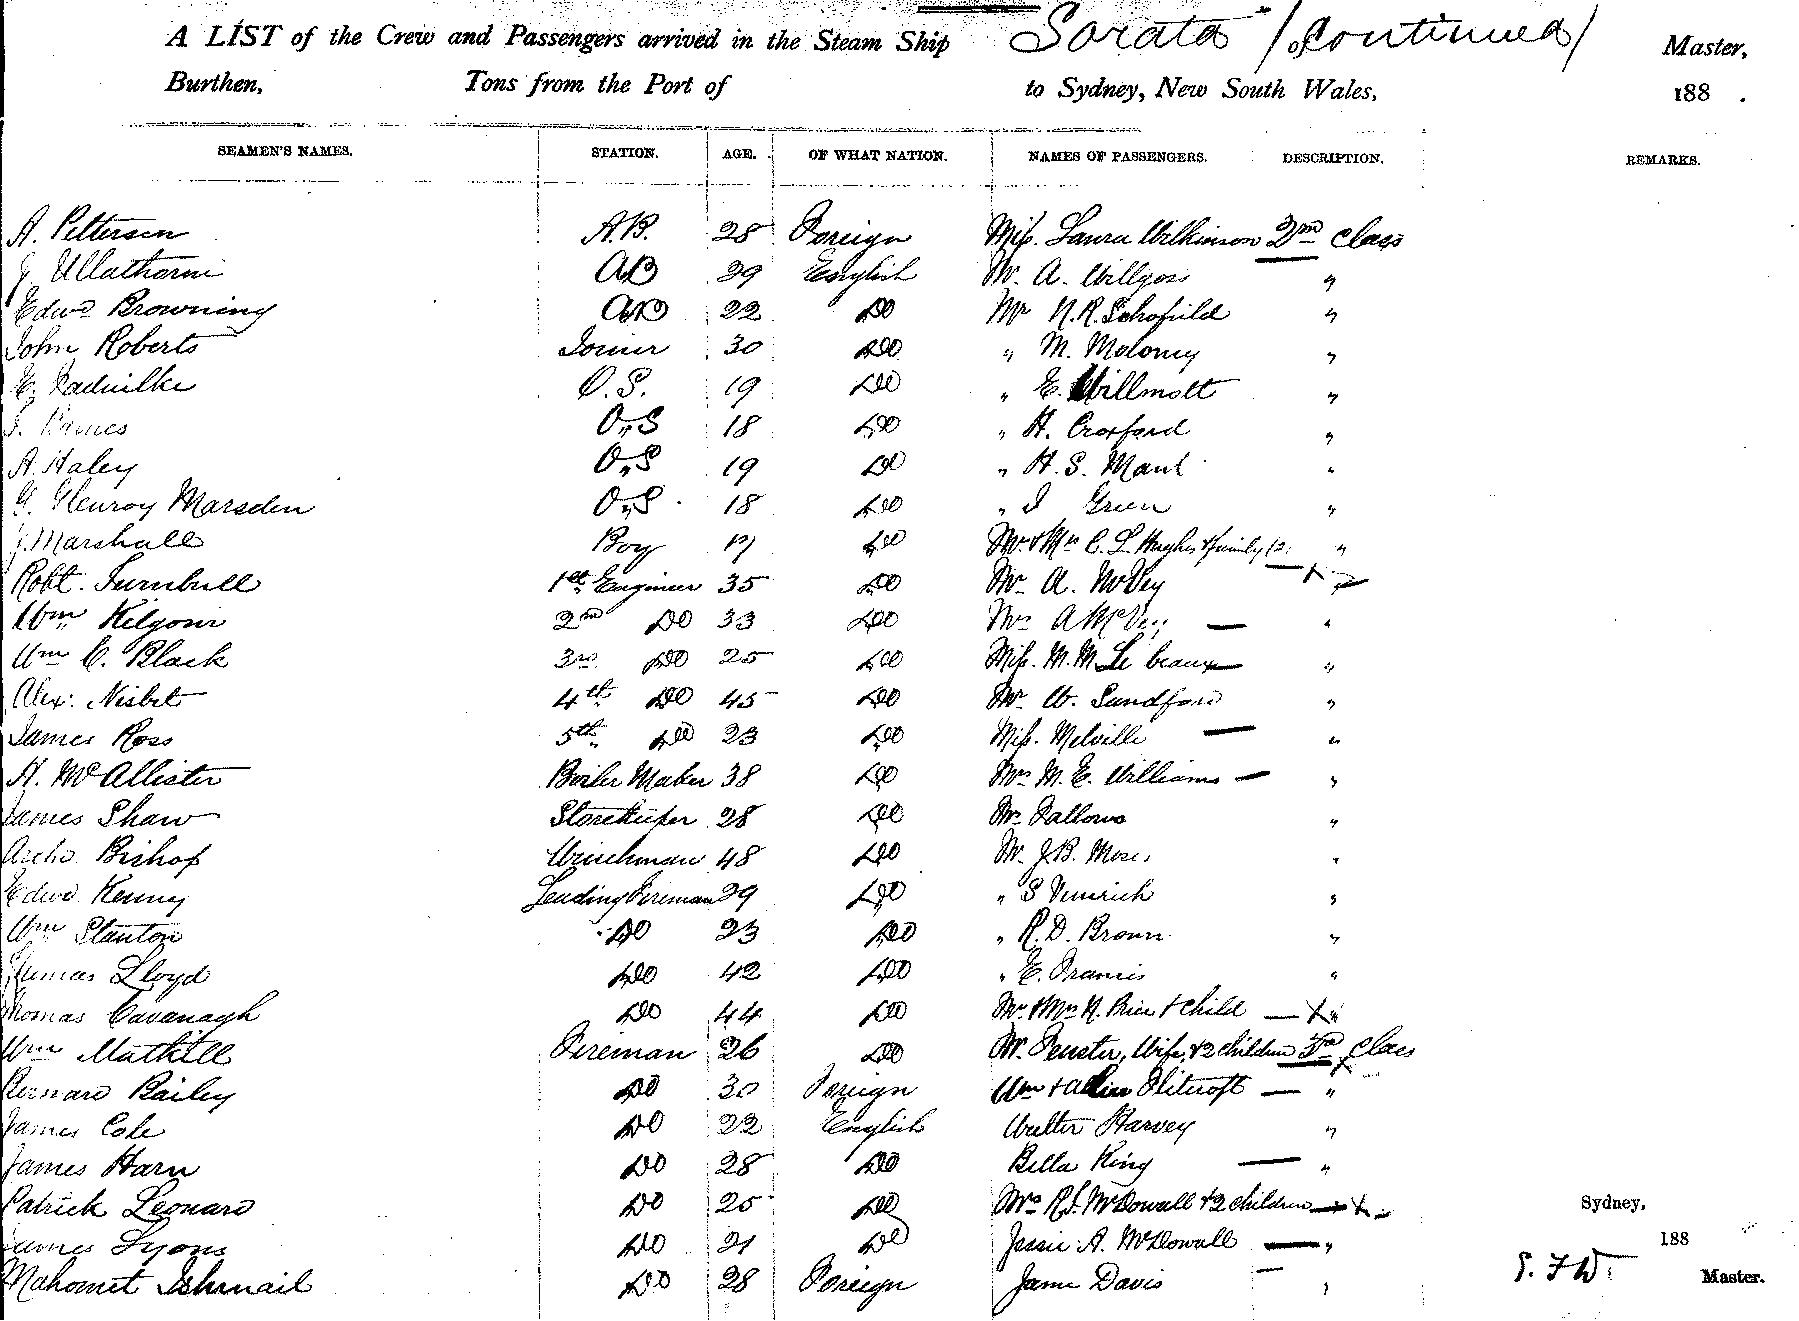 A LIST of the Crew and Passengers arrived in the Steam Ship Sorata (Continued) Master,
Burthen, Tons from the Port of to Sydney, New South Wales, 188 .
SEAMEN'S NAMES. STATION. AGE. OF WHAT NATION. NAMES OF PASSENGERS. DESCRIPTION. REMARKS.
A. Pettersen A.B. 28 Foreign Miss. Laura Wilkinson 2nd class
J. Ullathorni AB 29 English Mr. A. Willgoss "
Edwd Browning AB 22 Do Mr N.R. Schofield "
John Roberts Joiner 30 Do " M. Moloney "
E. O.S. 19 Do " E. Willmott "
J. Barnes O.S 18 Do " H. Croxford "
A. Haley O.S 19 Do " H. S. Mant "
G. Glenroy Marsden O.S 18 Do " J Green "
J. Marshall Boy 17 Do Mr & Mrs C. L. Hughes & family (2) "
Robt. Turnbull 1st Engineer 35 Do Mr A. McVey "
Wm Kilgour 2nd Do 33 Do Mrs A McVey — "
Wm C. Black 3rd Do 25 Do Miss. M. M Le beaux — "
Alex: Nisbet 4th Do 45 Do Mr W. Sandford "
James Ross 5th Do 23 Do Miss. Melville — "
H. McAllister Boiler Maker 38 Do Mrs M. E. Williams — "
James Shaw Storekeeper 28 Do Mr Fallows "
Archd. Bishop Winchman 48 Do Mr. J.B. Moses "
Edwd Kenny Leading Fireman 29 Do " S "
Wm Stanton Do 23 Do " R. D. Brown "
Thomas Lloyd Do 42 Do " E. Francis "
Thomas Cavanagh Do 44 Do Mr. & Mrs N. Price & child — X "
Wm Mathill Fireman 26 Do Mr. Fenster, Wife, & 2 children 3rd class
Bernard Bailey Do 30 Foreign Wm & Alice Flitcroft — "
James Cole Do 22 English Walter Harvey "
James Harn Do 28 Do Bella King — "
Patrick Leonard Do 25 Do Mrs R.J. McDowall & 2 children — X " Sydney,
James Lyons Do 21 Do Jessie A. McDowall — " 188
Mahomet Ishmail Do 28 Foreign Jane Davis — " Master.